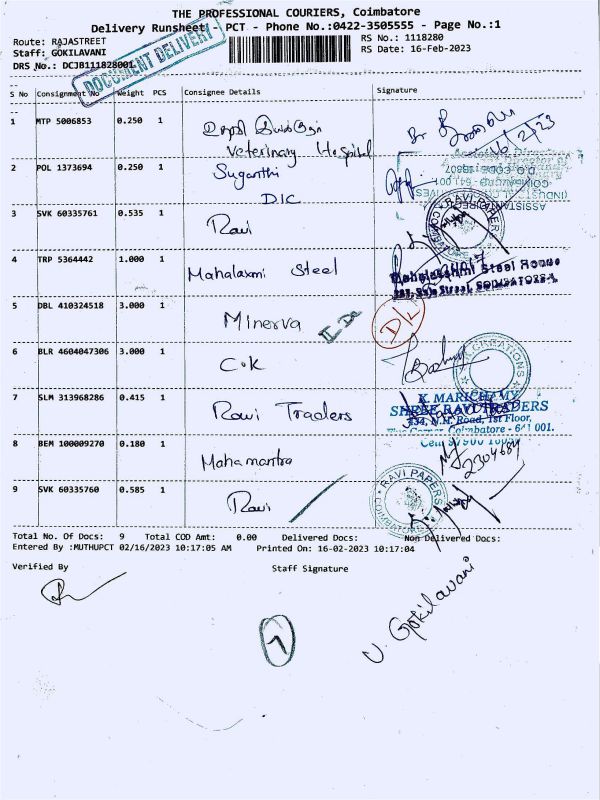 THE PROFESSIONAL COURIERS, Coimbatore
Delivery Runsheet PCT - Phone No.:0422-3505555 - Page No.:1
Route: RAJASTREET
RS No.: 1118280
Staff: GOKILAVANI
RS Date: 16-Feb-2023
DRS No.: DCJB111828001
DOCUMENT DELIVERY
S No Consignment No Weight PCS Consignee Details Signature
1 MTP 5006853 0.250 1
Veterinary Hospital
16/2/23
2 POL 1373694 0.250 1 Suganthi
DIC
3 SVK 60335761 0.535 1 Ravi
RAVI PAPERS
4 TRP 5364442 1.000 1 Mahalaxmi Steel
Mahalakshmi Steel House
5 DBL 410324518 3.000 1 Minerva
D/L
6 BLR 4604047306 3.000 1 C.K
C.K CREATIONS
7 SLM 313968286 0.415 1 Ravi Traders
K. MARICHAMY
SHREE RAVI TRADERS
334, N.H. Road, 1st Floor,
Coimbatore - 641 001.
8 BEM 100009270 0.180 1 Mahamantra
9 SVK 60335760 0.585 1 Ravi
RAVI PAPERS
COIMBATORE
Total No. Of Docs: 9 Total COD Amt: 0.00 Delivered Docs: Non Delivered Docs:
Entered By :MUTHUPCT 02/16/2023 10:17:05 AM Printed On: 16-02-2023 10:17:04
Verified By Staff Signature
V. Gokilavani
7